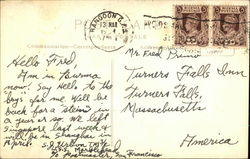 POST CARD
RANGOON G.P.O.
13 MAR
Hello Fred,
Am in Burma
now! Say Hello to the
boys for me. Will be
back for a stew in
a year or so. We left
Singapore last week &
be in Shanghai in
April.
Mr Fred Primo
Turners Falls Inn
Turners Falls,
Massachusetts
America
Postmaster, San Francisco